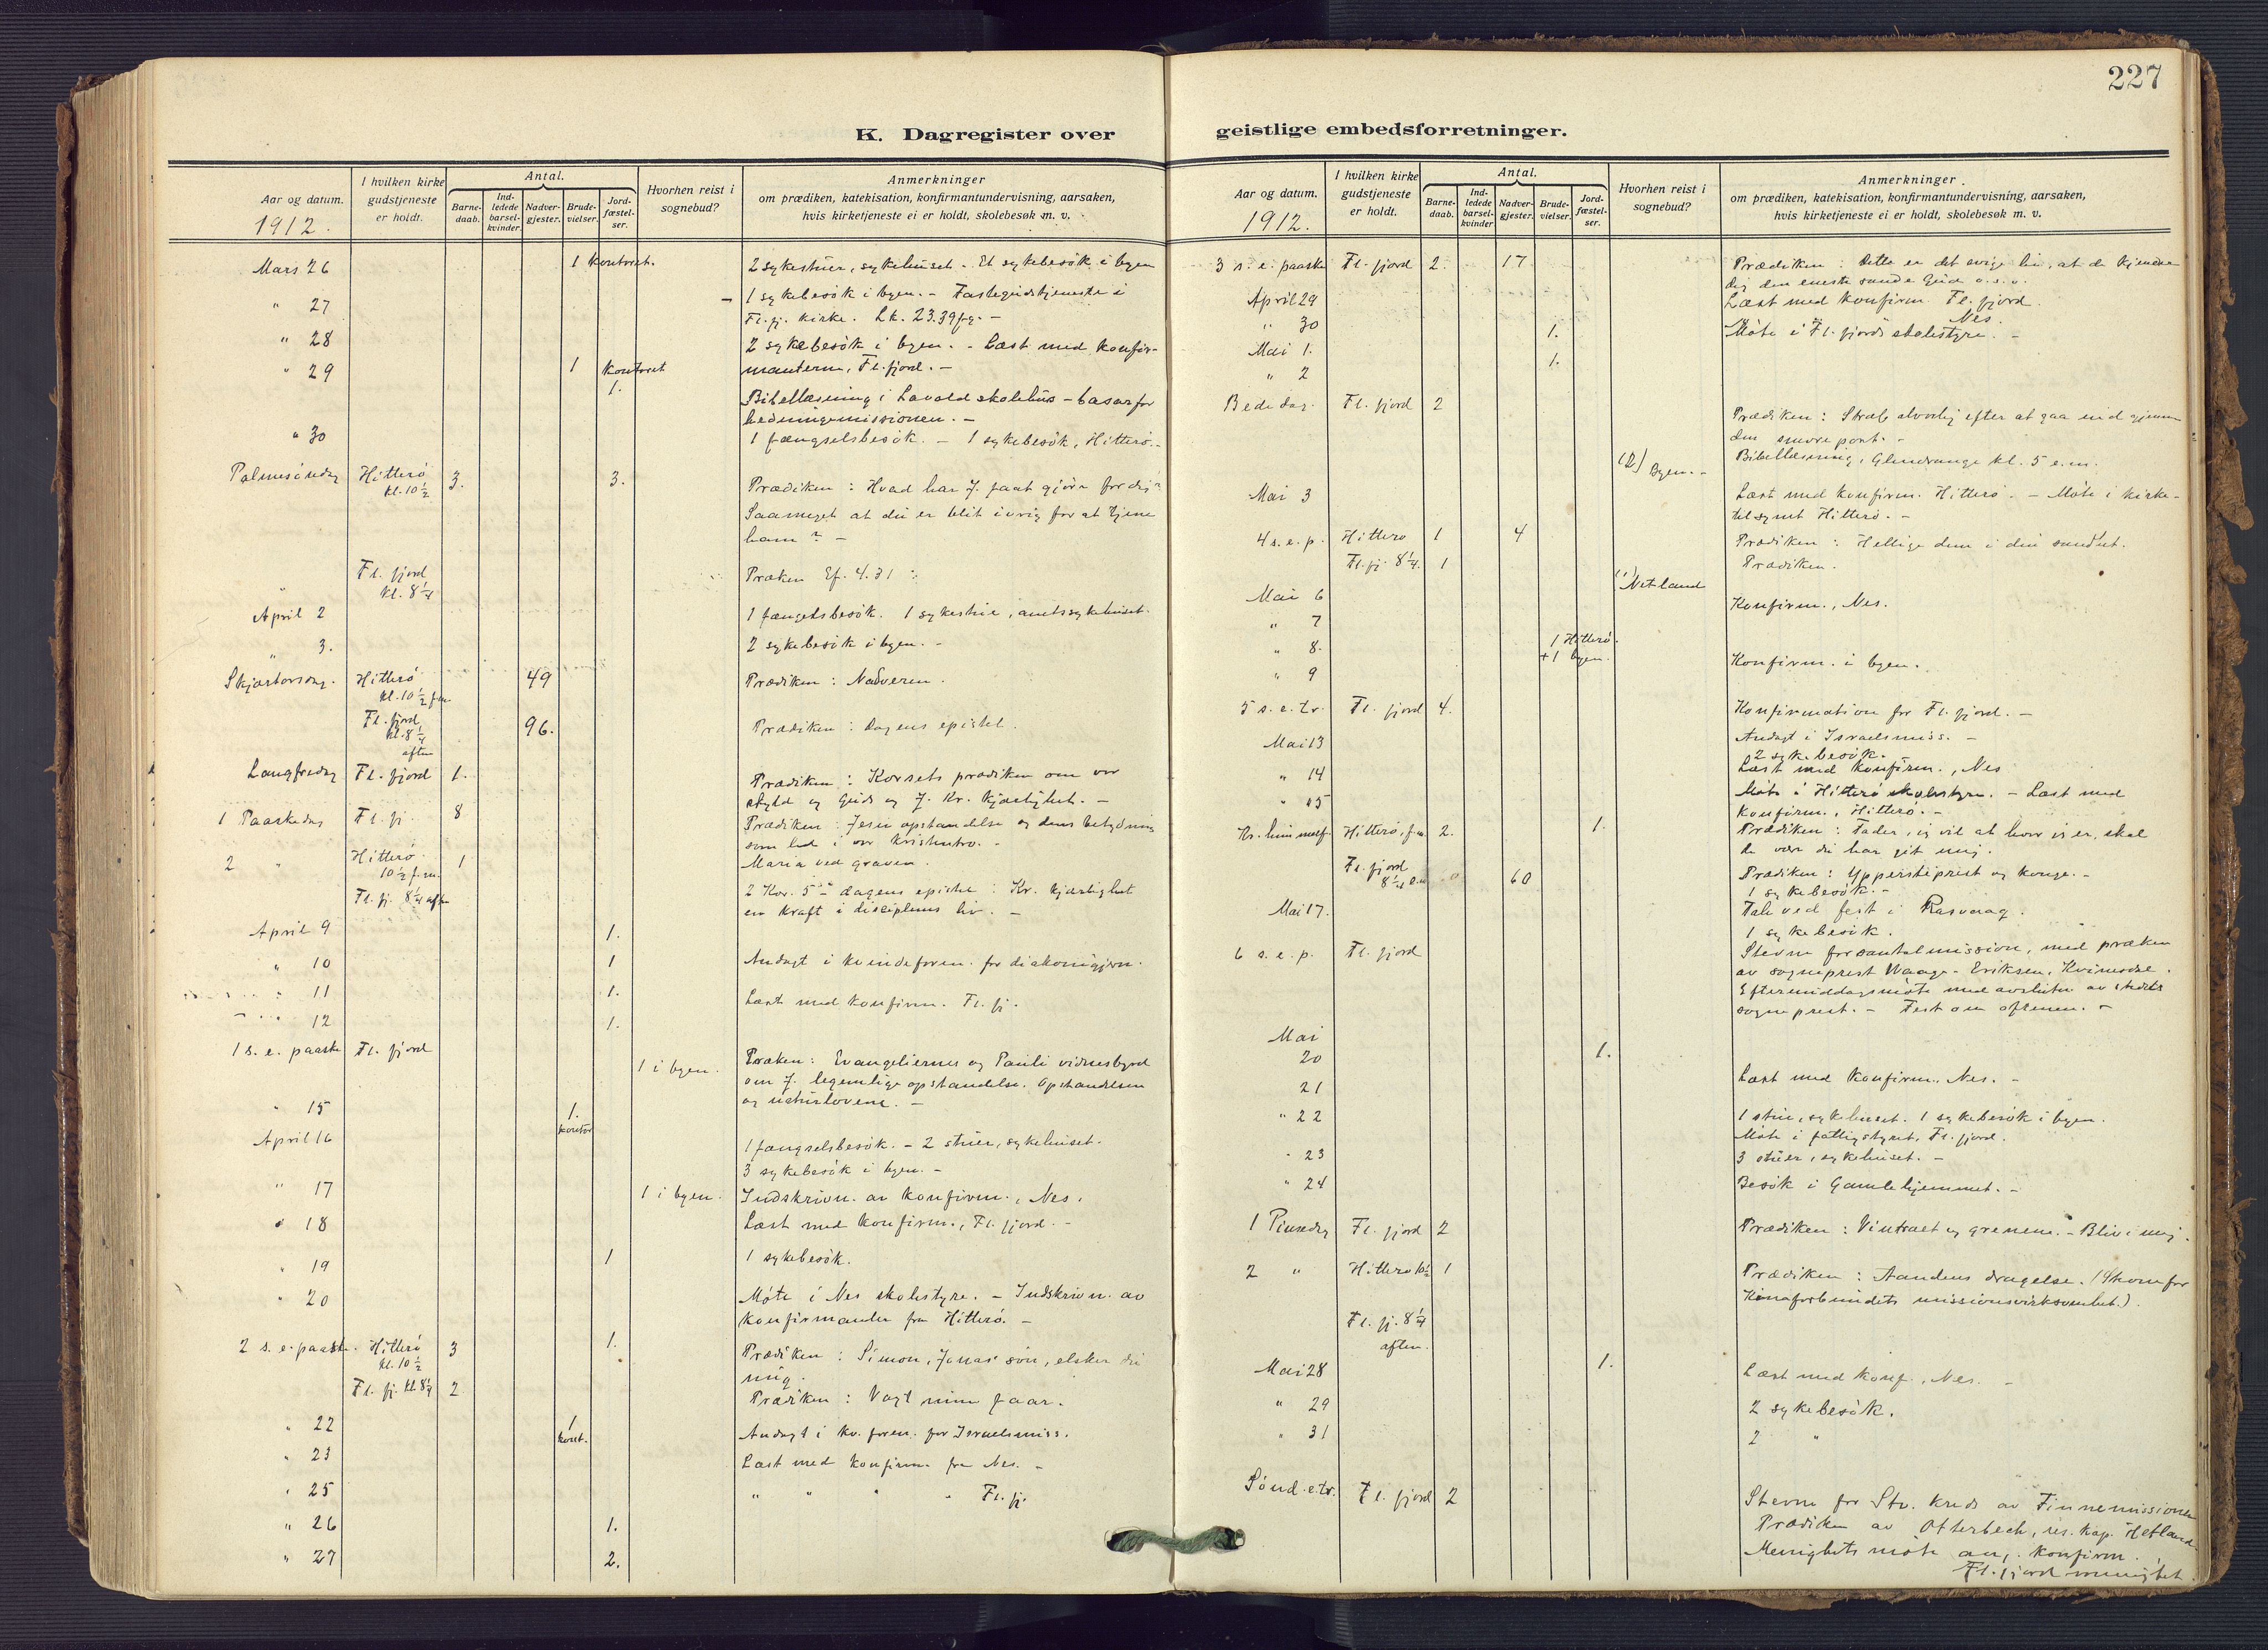 227
K. Dagregister over
Aar og datum.
1912.
I hvilken kirke gudstjeneste er holdt.
Antal.
Barne-daab.
Ind-ledede barsel-kvinder.
Nadver-gjester.
Brude-vielser.
Jord-fæstel-ser.
Hvorhen reist i sognebud?
Anmerkninger
om prædiken, katekisation, konfirmantundervisning, aarsaken,
hvis kirketjeneste ei er holdt, skolebesøk m. v.
Mars 26 1 kontoret. 2 sykestuer, sykehuset. - Et sykebesøk i byen
" 27 1 sykebesøk i byen. - Fastegudstjeneste i
Fl.fj. kirke. Lk. 23.39 fg. -
" 28 2 sykebesøk i byen. - Læst med konfir-
" 29 1 kontoret manterne, Fl.fjord. -
1. Bibellæsning i Lavold skolehus - basar for
hedningemissionen. -
" 30 1 fængselsbesøk. - 1 sykebesøk, Hitterø. -
Palmesøndag Hitterø kl. 10 1/2 3. 3. Prædiken: Hvad har J. faat gjøre for dig?
Saa meget at du er blit ivrig for at tjene
ham? -
" Fl. fjord kl. 8 1/4 Præken Ef. 4.31
April 2 1 fængselsbesøk. 1 sykestue, amtssykehuset.
" 3. 2 sykebesøk i byen. -
Skjærtorsdag. Hitterø kl. 10 1/2 f.m. 49 Prædiken: Nadveren.
Fl. fjord kl. 8 1/4 aften 96. Prædiken: Dagens epistel.
Langfredag Fl. fjord 1. Prædiken: Korsets prædiken om vor
skyld og Guds og J. Kr. kjærlighet. -
1 Paaskedag Fl. fj. 8 Prædiken: Jesu opstandelse og dens betydning
som led i vor kristentro. -
2 " Hitterø 10 1/2 f.m. 1 Maria ved graven.
Fl. fj. 8 1/4 aften 2 Kor. 5 dagens epistel: Kr. kjærlighet
en kraft i disciplens liv. -
April 9 1.
" 10 1 Andagt i kvindeforen. for diakonigjern.
" 11 1. Læst med konfirm. Fl. fj.
" 12 1.
1 s. e. paaske Fl. fjord 1 i byen. Præken: Evangeliernes og Pauli vidnesbyrd
om J. legemlige opstandelse. Opstandelsen
og naturlovene. -
" 15 1. kontor
April 16 1 fængselsbesøk. - 2 stuer, sykehuset.
3 sykebesøk i byen. -
" 17 1 i byen. Indskrivn. av konfirm., Nes.
" 18 Læst med konfirm., Fl. fjord. -
" 19 1 1 sykebesøk.
" 20 Møte i Nes skolestyre. - Indskrivn. av
konfirmander fra Hitterø. -
2 s. e. paaske. Hitterø kl. 10 1/2 3 1. Prædiken: Simon, Jonas' søn, elsker du
mig.
Fl. fj. kl. 8 1/4 2 Prædiken: Vogt mine faar.
" 22 1 kont. Andagt i kv. foren. for Israelsmiss.
" 23 Læst med konfirm. fra Nes. -
" 25 " " " " Fl. fj.
" 26 1.
" 27 2.
geistlige embedsforretninger.
Aar og datum.
1912.
I hvilken kirke gudstjeneste er holdt.
Antal.
Barne-daab.
Ind-ledede barsel-kvinder
Nadver-gjester.
Brude-vielser.
Jord-fæstel-ser.
Hvorhen reist i sognebud?
Anmerkninger
om prædiken, katekisation, konfirmantundervisning, aarsaken,
hvis kirketjeneste ei er holdt, skolebesøk m. v.
3 s. e. paaske Fl. fjord 2. 17 Prædiken: Dette er det evige liv, at de kjender
dig den eneste sande Gud o.s.v.
April 29 Læst med konfirm. Fl. fjord.
Nes.
" 30 1. Møte i Fl. fjords skolestyre. -
Mai 1. 1.
" 2
Bededag. Fl. fjord 2 Prædiken: Stræb alvorlig efter at gaa ind gjennem
den snevre port. -
(2) Byen. - Bibellæsning, Glendrange kl. 5 e.m.
Mai 3 Læst med konfirm. Hitterø. - Møte i kirke-
tilsynet Hitterø. -
4 s. e. p. Hitterø 1 4 Prædiken: Hellige dem i din sandhet.
Fl. fj. 8 1/4. 1 Prædiken.
Mai 6 (1) Netland Konfirm., Nes.
" 7
" 8. 1 Hitterø.
+ 1 byen. Konfirm. i byen.
" 9
5 s. e. tr. Fl. fjord 4. Konfirmation for Fl. fjord. -
Mai 13 Andagt i Israelsmiss. -
2 syk. besøk.
" 14 Læst med konfirm., Nes
" 15 Møte i Hitterø skolestyre. - Læst med
konfirm., Hitterø. -
Kr. himmelf. Hitterø, f.m. 2. 1. Prædiken: Fader, jeg vil at hvor jeg er, skal
de være du har git mig.
Fl. fjord 8 1/4 e.m. 60 Prædiken: Ypperstepræst og konge. -
1 sykebesøk. -
Mai 17. Tale ved fest i Rasvaag.
1 sykebesøk.
6 s. e. p. Fl. fjord Stevne for santalmission, med præken
av sogneprest Waage-Eriksen, Kvinesdal.
Eftermiddagsmøte med avslutn. av stedets
sogneprest. - Fest om aftenen. -
Mai
20 1.
21 Læst med konfirm. Nes. -
" 22 1 stue, sykehuset. 1 sykebesøk i byen.
Møte i fattigstyret, Fl. fjord.
" 23 3 stuer, sykehuset. -
" 24 Besøk i Gamlehjemmet. -
1 Pinsedag Fl. fjord 2 Prædiken: Vintræet og grenene. - Bliv i mig.
2 " Hitterø 10 1/2 1 Prædiken: Aandens dragelse. (
Kinaforbundets missionsvirksomhet.).
Fl. fj. 8 1/4 aften.
Mai 28 1. Læst med konf., Nes. -
" 29 2 sykebesøk.
" 31 2 "
Sønd. e. tr. Fl. fjord 2 Stevne for Stv. kreds av Finnemissionen
Prædiken av Otterbech, res. kap. Hetland
Menighets møte ang. konfirm.
Fl. fjord menighet.